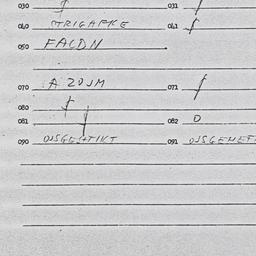 030 031
040 STRIGAPKE 041
050 FALDN
070 A 20JM 071
080
081 082 O
090 OJSGESTIKT 091 OJSGENET